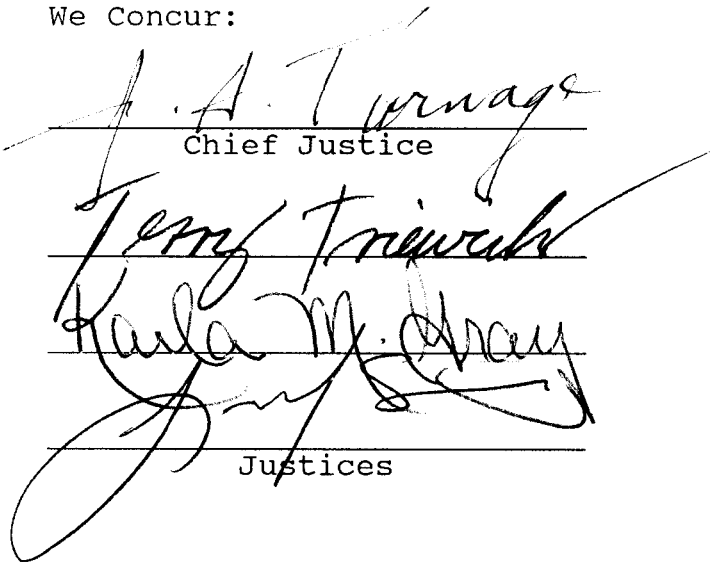 We Concur:
J. A. Turnage
Chief Justice
Terry Trieweiler
Karla M. Gray
Justices